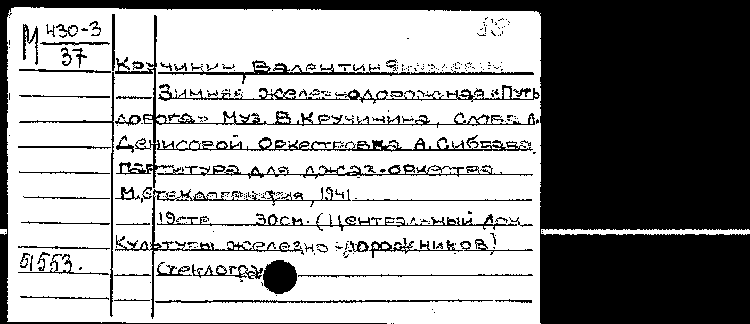 М 430-3
37
Кручинин, Валентин Яковлевич
Зимняя железнодорожная «Путь
дорога» Муз. В. Кручинина, слова А.
Денисовой. Оркестровка А. Сибваба
партитура для джаз-оркестра.
М., Стеклография, 1941.
19 стр 30 см. (Центральный дом
культуры железно-дорожников)
91553. Стеклогра